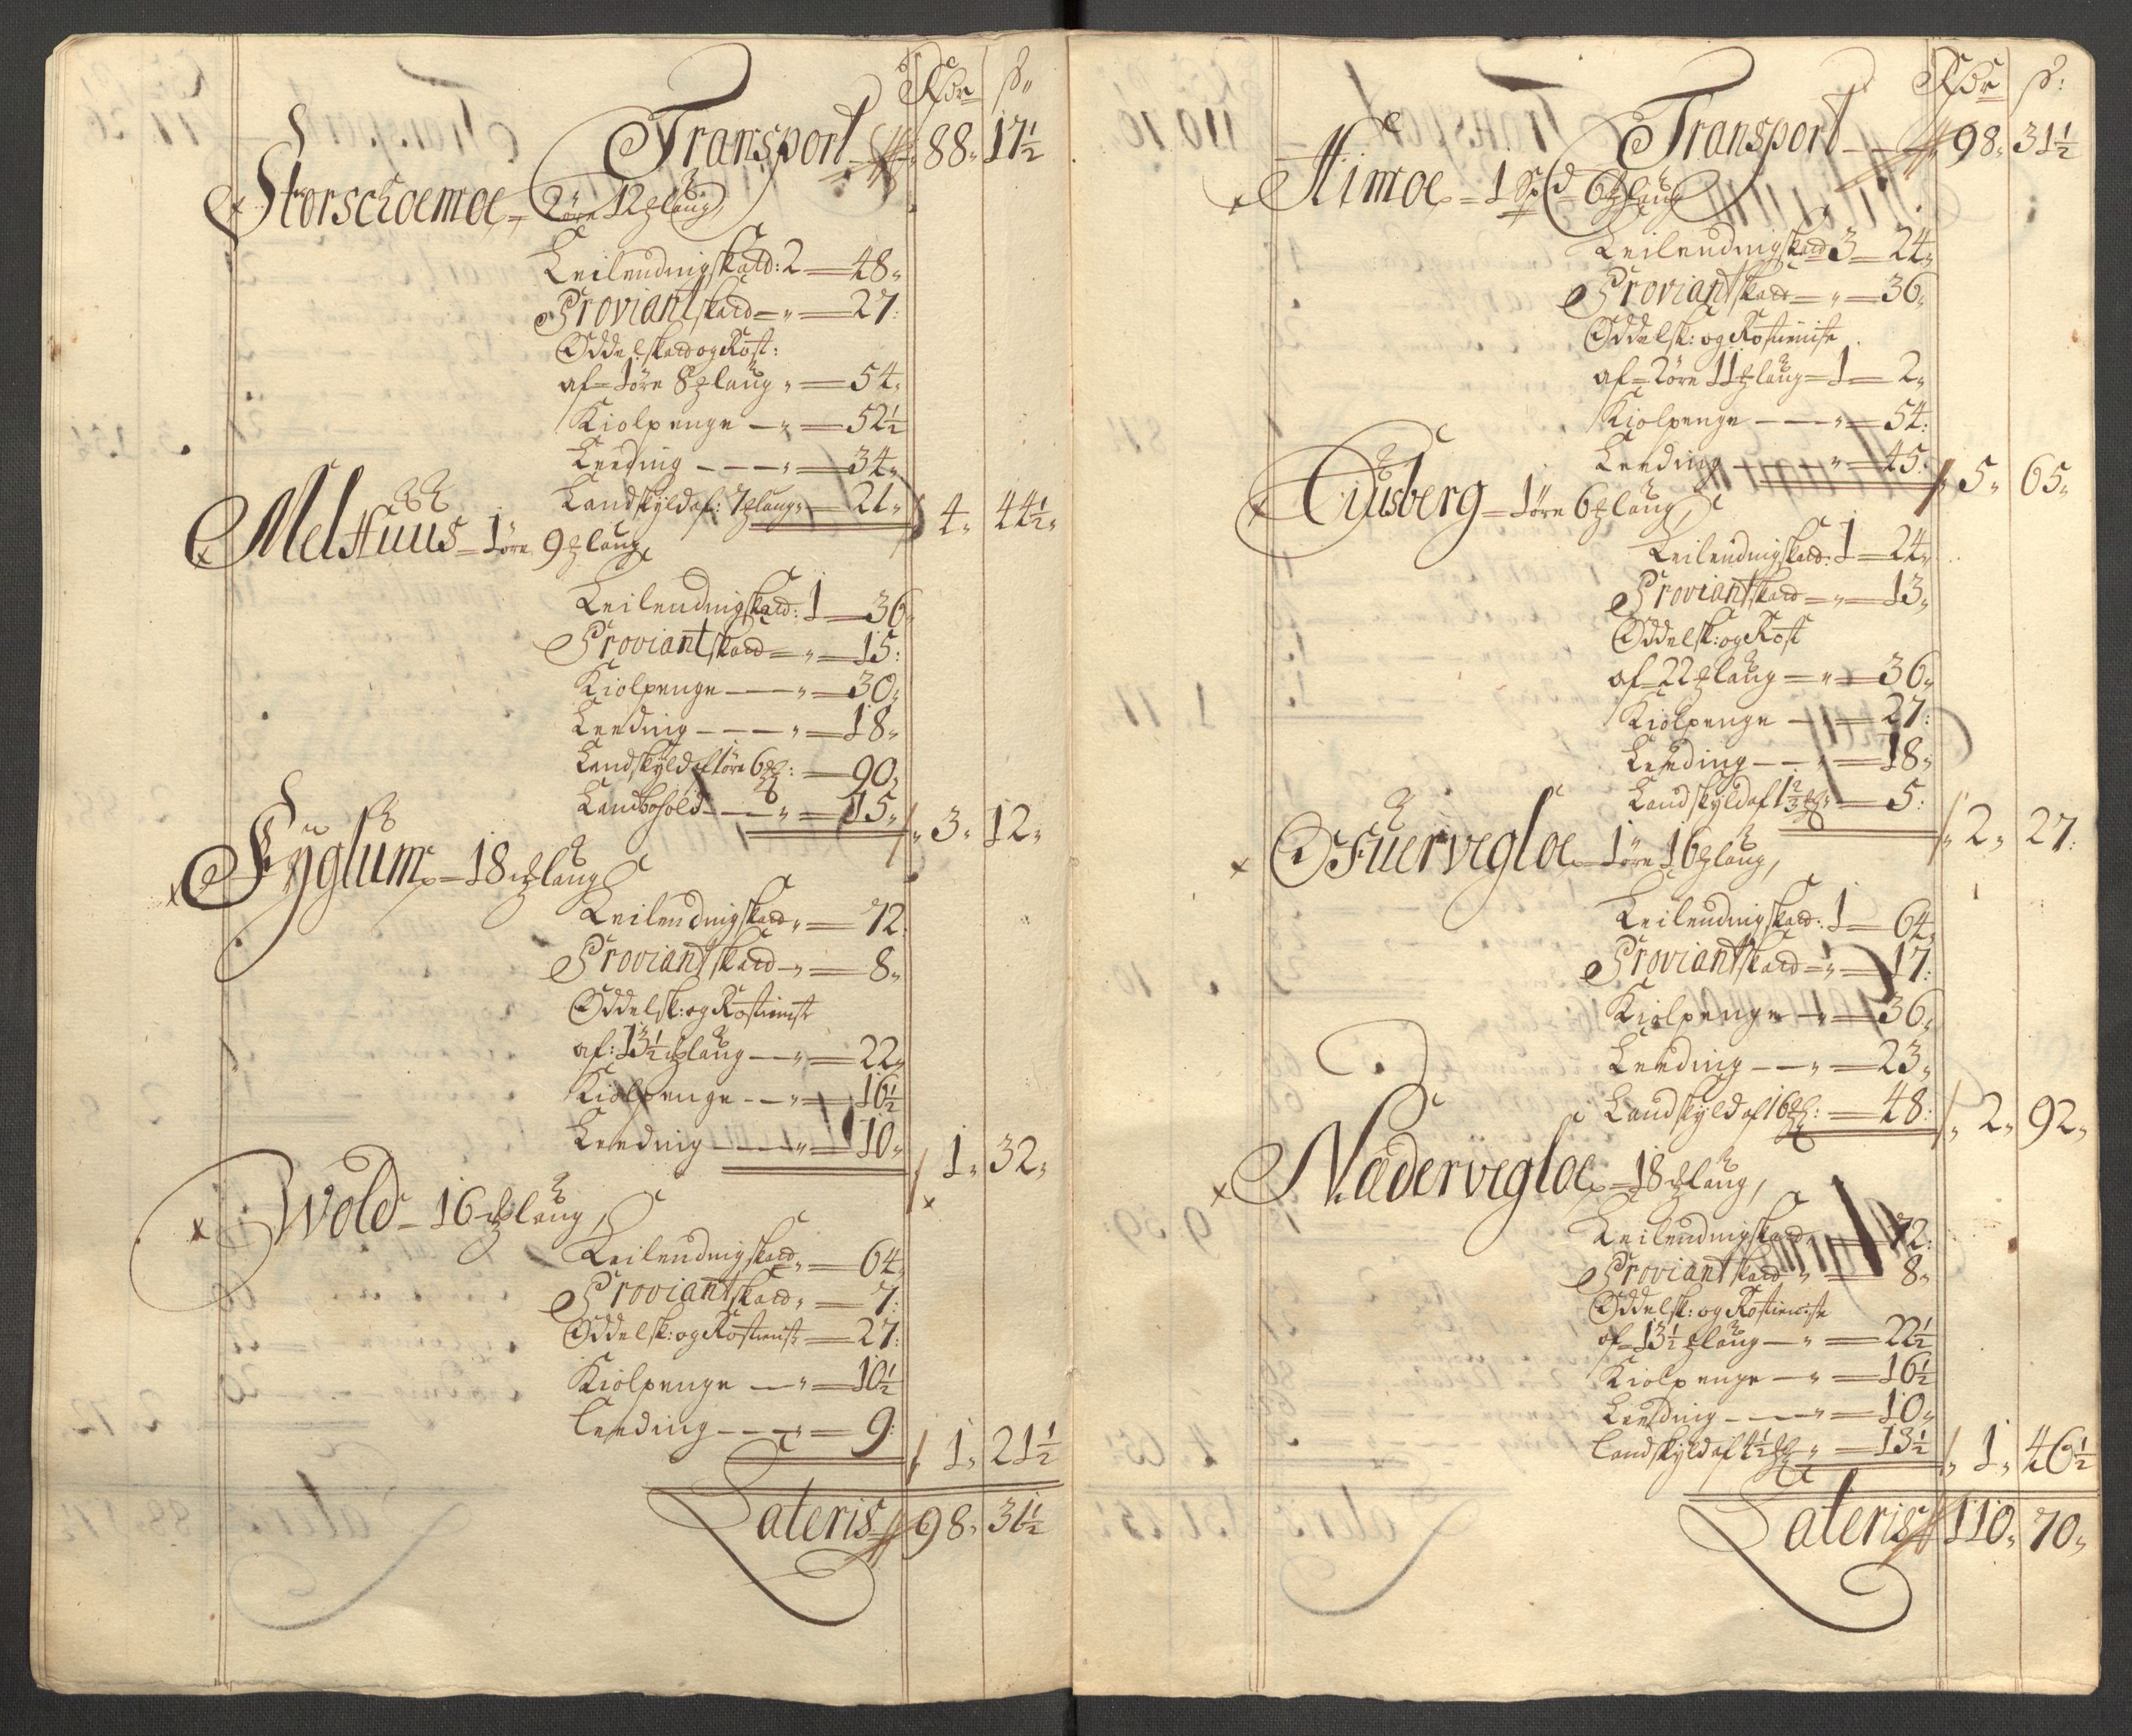 Rdr ß
Transport 88 17½
Storschoemoe = 2 øre 12 β laug
Leilendnigskatd: 2 — 48
Proviantskatd = „ = 27
Oddelskatd og Rost:
af = 1 øre 8 β laug „ = 54
Kiolpenge — „ = 52½
Leeding - - - „ = 34
Landskyld af: 7 β laug = 21 4 44½
Melhuus = 1 øre 9 β laug
Leilendnigskatd: 1 — 36
Proviantskatd = „ = 15
Kiolpenge — „ = 30
Leeding - - - „ = 18
Landskyld af 1 øre 6 β l: = 90
Landbohold — „ = 15 3 12
Fyglum = 18 β laug
Leilendnigskatd „ = 72
Proviantskatd „ = 8
Oddelsk: og Rostienist
af: 13½ β laug — „ = 22
Kiolpenge - - „ = 16½
Leeding — „ = 10 1 32
Wold = 16 β laug
Leilendnigskatd „ = 64
Proviantskatd „ = 7
Oddelsk: og Rostienist = 27
Kiolpenge — „ = 10½
Leeding - - „ = 9 1 21½
Lateris 98 31½
Rdr ß
Transport 98 31½
Himoe = 1 Spd 6 β laug
Leilendnigskatd 3 = 24
Proviantskatd = „ = 36
Oddelsk: og Rostienist
af = 2 øre 11 β laug = 1 — 2
Kiolpenge - - - „ = 54
Leeding — „ = 45 5 65
= 1 øre 6 β laug
Leilendnigskatd: 1 = 24
Proviantskatd = „ = 13
Oddelsk: og Rost
af = 22 β laug = „ = 36
Kiolpenge — „ = 27
Leeding - - „ = 18
Landskyld af 1⅔ β l „ = 5 2 27
Ofuervegloe = 1 øre 16 β laug
Leilendnigskatd: 1 = 64
Proviantskatd = „ = 17
Kiolpenge — „ = 36
Leeding - - „ = 23
Landskyld af 16 β l: = 48 2 92
Nedervegloe = 18 β laug
Leilendnigskatd „ = 72
Proviantskatd „ = 8
Oddelsk: og Rostienist
af = 13½ β laug — „ = 22½
Kiolpenge — „ = 16½
Leeding - - - „ = 10
Landskyld af 4½ β l „ = 13½ 1 46½
Lateris 110 70